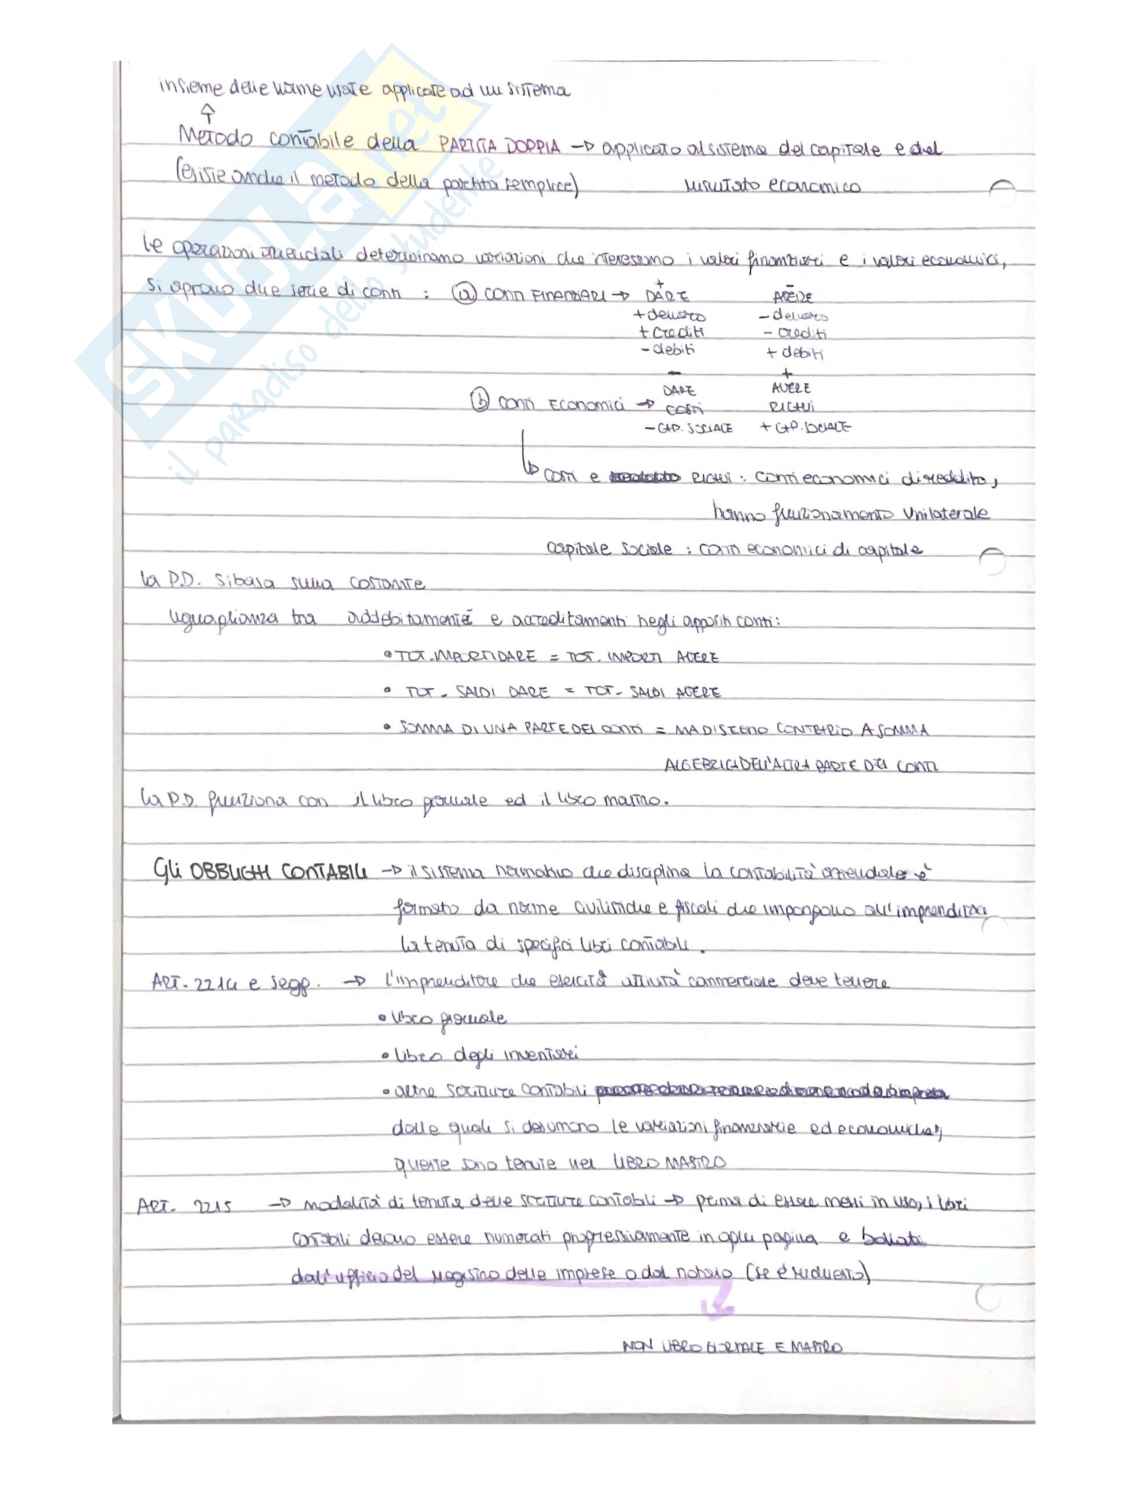 insieme delle norme usate applicate ad un sistema
Metodo contabile della PARTITA DOPPIA → applicato al sistema del capitale e del
(esiste anche il metodo della partita semplice) risultato economico
Le operazioni aziendali determinano variazioni che interessano i valori finanziari e i valori economici,
si aprono due serie di conti : ⓐ CONTI FINANZIARI → DARE AVERE
+ -
+ denaro - denaro
+ crediti - crediti
- debiti + debiti
- +
DARE AVERE
ⓑ CONTI ECONOMICI → COSTI RICAVI
- CAP. SOCIALE + CAP. SOCIALE
costi e RICAVI : conti economici di reddito,
hanno funzionamento unilaterale
capitale sociale : conti economici di capitale
La P.D. si basa sulla costante
uguaglianza tra addebitamenti e accreditamenti negli appositi conti:
• TOT. IMPORTI DARE = TOT. IMPORTI AVERE
• TOT. SALDI DARE = TOT. SALDI AVERE
• SOMMA DI UNA PARTE DEI CONTI = MA DI SEGNO CONTRARIO A SOMMA
ALGEBRICA DELL'ALTRA PARTE DEI CONTI
La P.D. funziona con il libro giornale ed il libro mastro.
Gli OBBLIGHI CONTABILI → il sistema normativo che disciplina la contabilità aziendale è
formato da norme civilistiche e fiscali che impongono all'imprenditore
la tenuta di specifici libri contabili.
ART. 2214 e segg. → l'imprenditore che esercita attività commerciale deve tenere
• libro giornale
• libro degli inventari
• altre scritture contabili
dalle quali si desumono le variazioni finanziarie ed economiche,
queste sono tenute nel LIBRO MASTRO
ART. 2215 → modalità di tenuta delle scritture contabili → prima di essere messi in uso, i libri
contabili devono essere numerati progressivamente in ogni pagina e bollati
dall'ufficio del registro delle imprese o dal notaio (se è richiesto)
NON LIBRO GIORNALE E MASTRO
SKUOLA.net
il paradiso dello studente